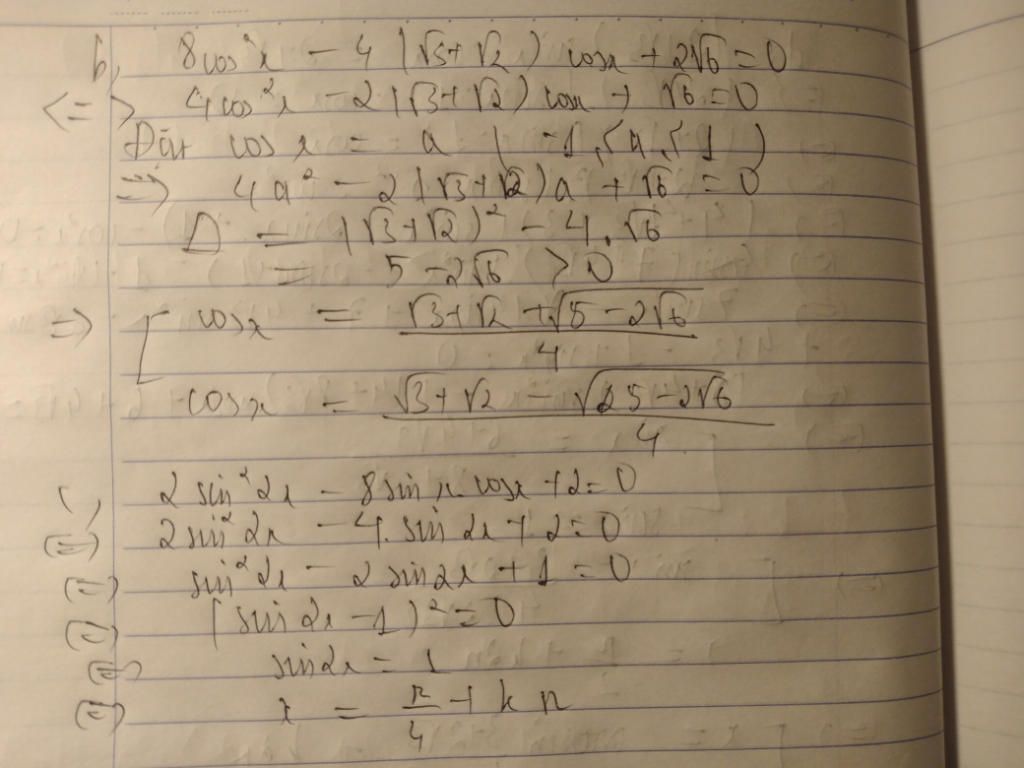 b, 8cos²x - 4(√3+√2) cosx + 2√6 = 0
<=> 4cos²x - 2(√3+√2) cosx + √6 = 0
Đặt cos x = a (-1 ≤ a ≤ 1)
=> 4a² - 2(√3+√2)a + √6 = 0
Δ = (√3+√2)² - 4.√6
= 5 - 2√6 > 0
=> [ cosx = (√3+√2 + √(5-2√6))/4
cosx = (√3+√2 - √(25-2√6))/4
c, 2sin²2x - 8sin x cosx + 2 = 0
(=) 2sin²2x - 4.sin 2x + 2 = 0
(=) sin²2x - 2 sin2x + 1 = 0
(=) (sin 2x - 1)² = 0
(=) sin2x = 1
(=) x = π/4 + kπ